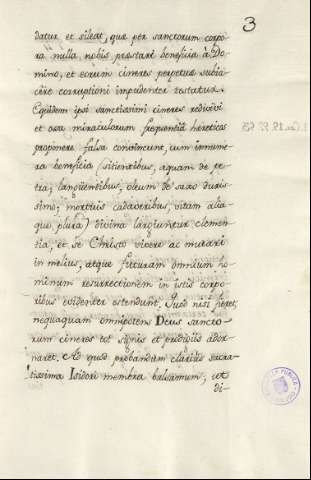 3
datur, et sileat, quæ per sanctorum corpo
ra nulla nobis præstari beneficia à Do
mino, et eorum cineres perpetuæ subia
cere corruptioni impudenter testatur.
Equidem ipsi sanctissimi cineres redivivi
et ossa miraculorum frequentiâ hereticos
proponere falsa convincunt, cum innume
ra beneficia (sitientibus, aquam de pe
tra; languentibus, oleum de saxo duris
simo; mortuis cadaveribus, vitam alia
que plura) divina largiuntur clemen
tia, et se Christo vivere ac mutari
in melius, atque futuram omnium ho
minum resurrectionem in istis corpo
ribus evidenter ostendunt. Quod nisi foret,
nequaquam omnipotens Deus sancto-
rum cineres tot signis et prodigiis ador
naret. Ad quod probandum clarius sacra-
tissima Isidori membra balsamum, ut
di-